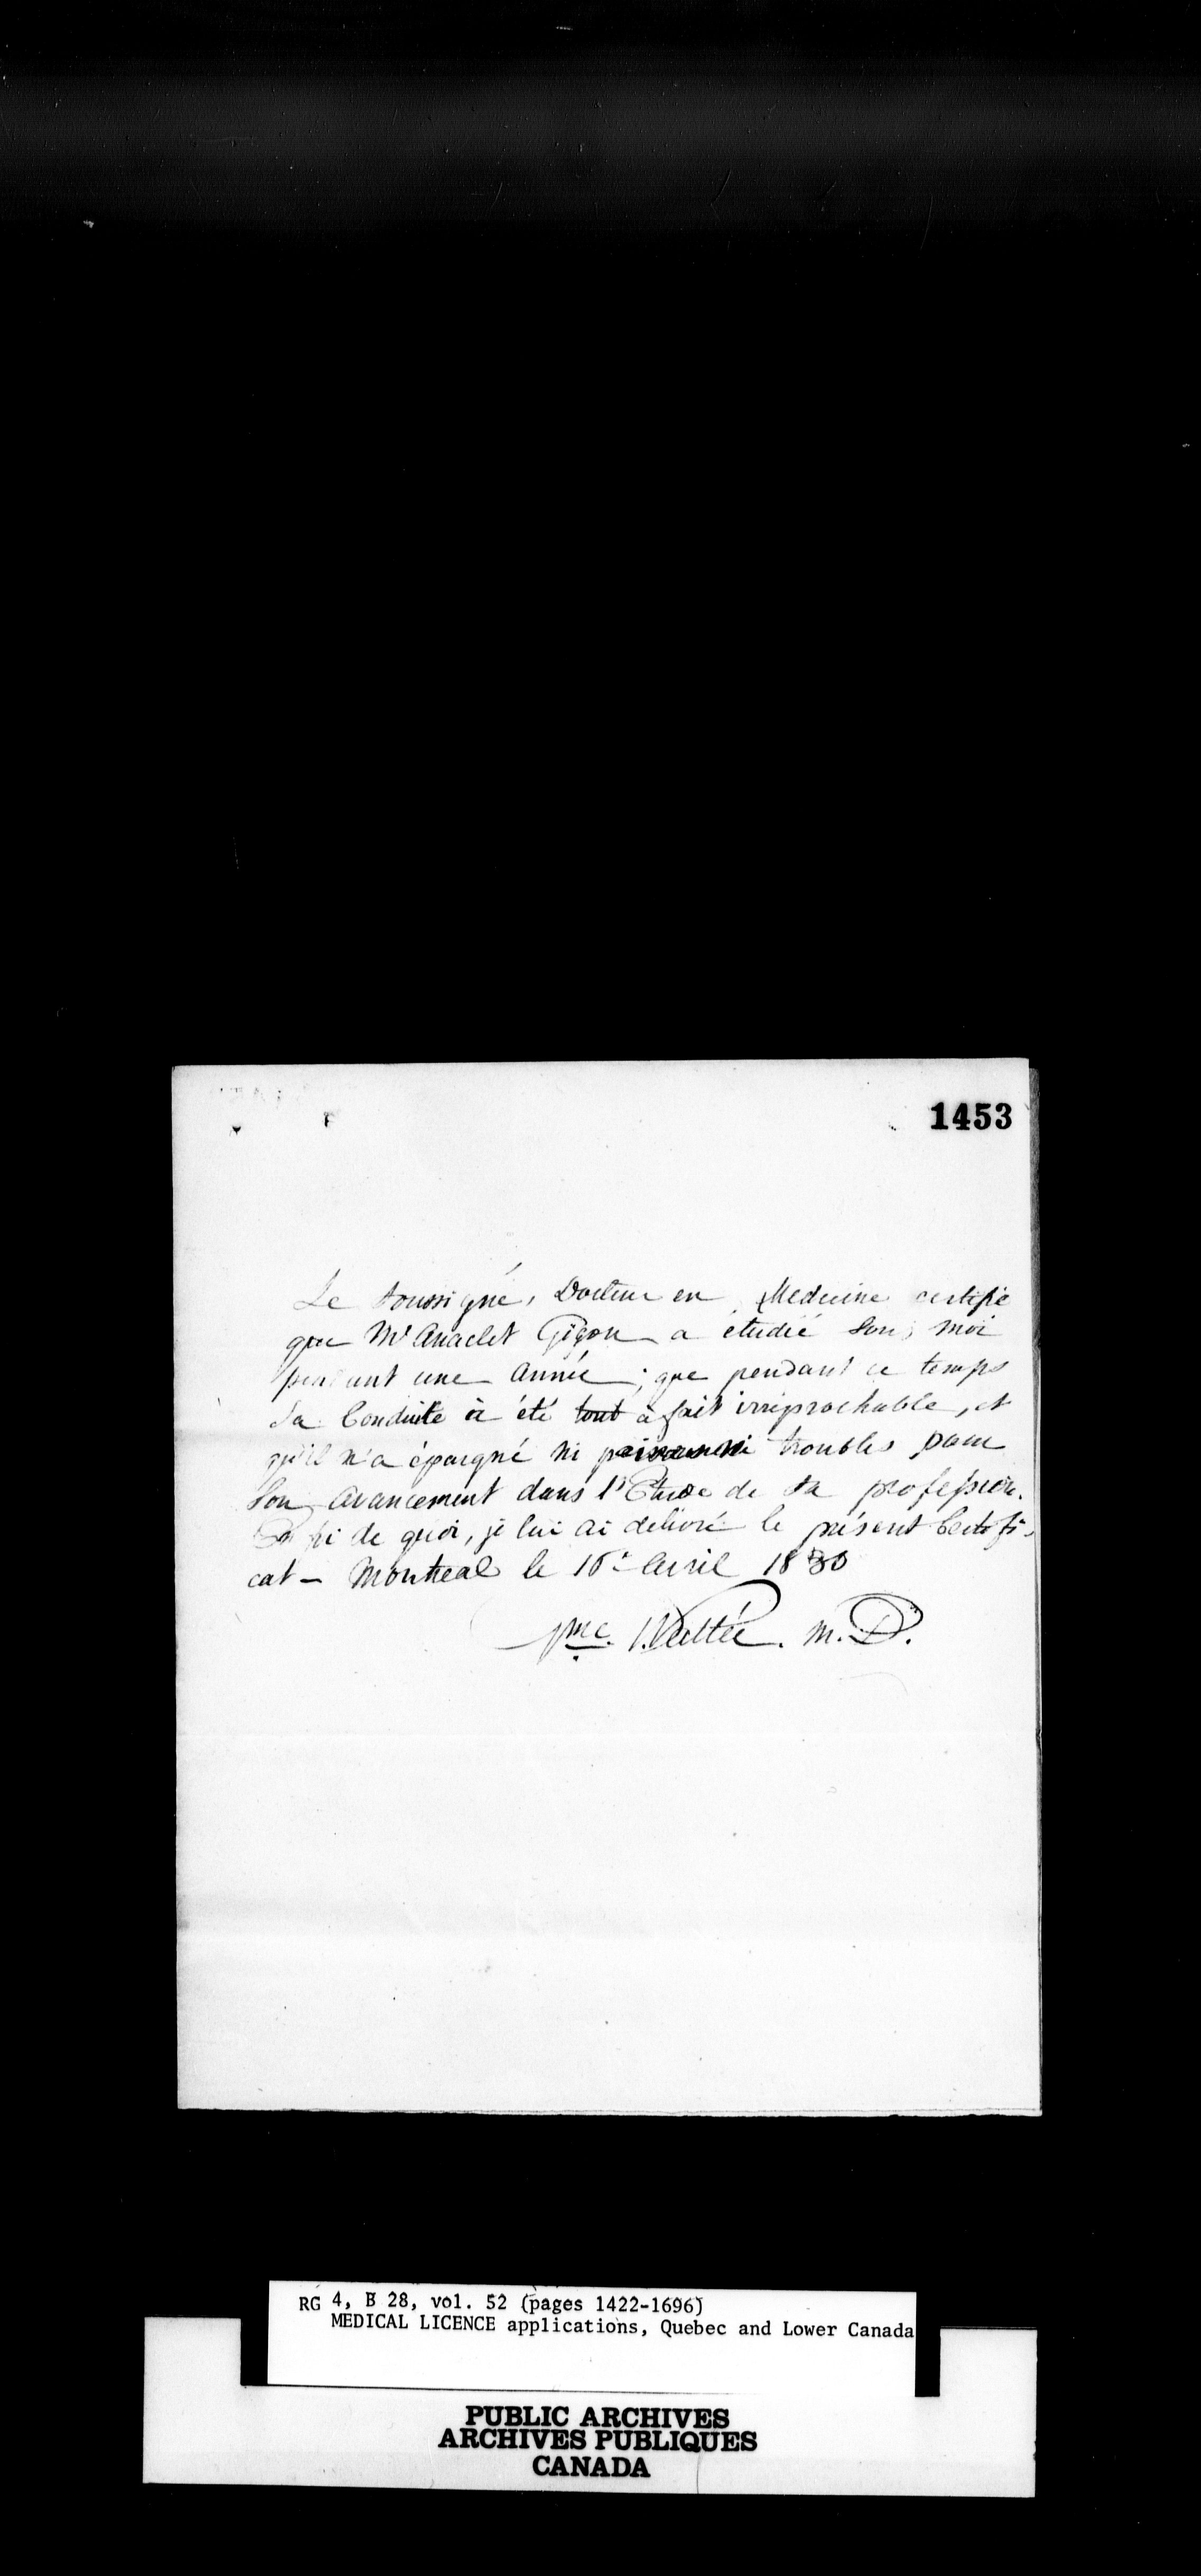 1453
Le Soussigné, Docteur en Medecine certifie
que Mr Anaclet Gigon a etudié Sous moi
pendant une année ; que pendant ce temps
Sa Conduite a été tout à fait irréprochable, et
qu'il n'a épargné ni peines ni troubles pour
Son avancement dans l'Etude de sa profession.
En foi de quoi, je lui ai délivré le présent Certifi-
cat - Montreal le 16e Avril 1830
Vallée. M.D.
RG 4, B 28, vol. 52 (pages 1422-1696)
MEDICAL LICENCE applications, Quebec and Lower Canada
PUBLIC ARCHIVES
ARCHIVES PUBLIQUES
CANADA